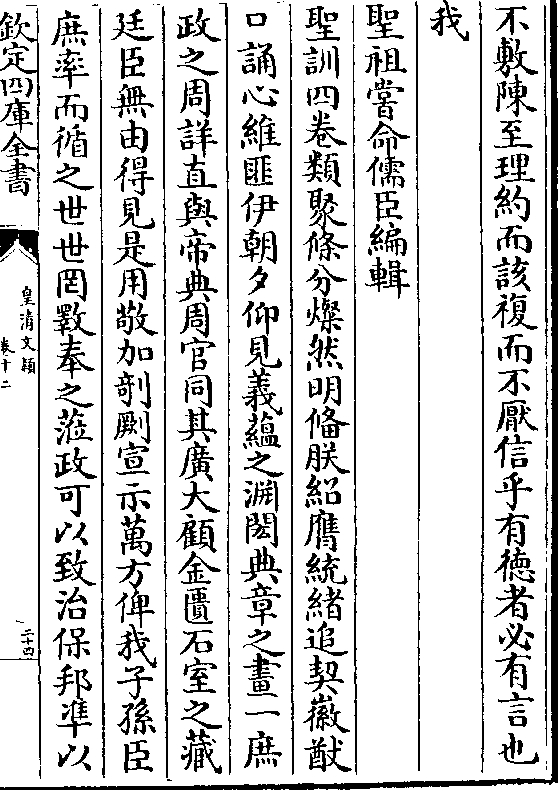 不敷陳至理約而該復而不厭信乎有德者必有言也
我
聖祖嘗命儒臣編輯
聖訓四卷類聚條分燦然明備朕紹膺統緒追契徽猷
口誦心維匪伊朝夕仰見義蘊之淵閎典章之畫一庶
政之周詳直與帝典周官同其廣大顧金匱石室之藏
廷臣無由得見是用敬加剞劂宣示萬方俾我子孫臣
庶率而循之世世罔斁奉之蒞政可以致治保邦凖以
欽定四庫全書
皇清文穎
卷十二
二十四